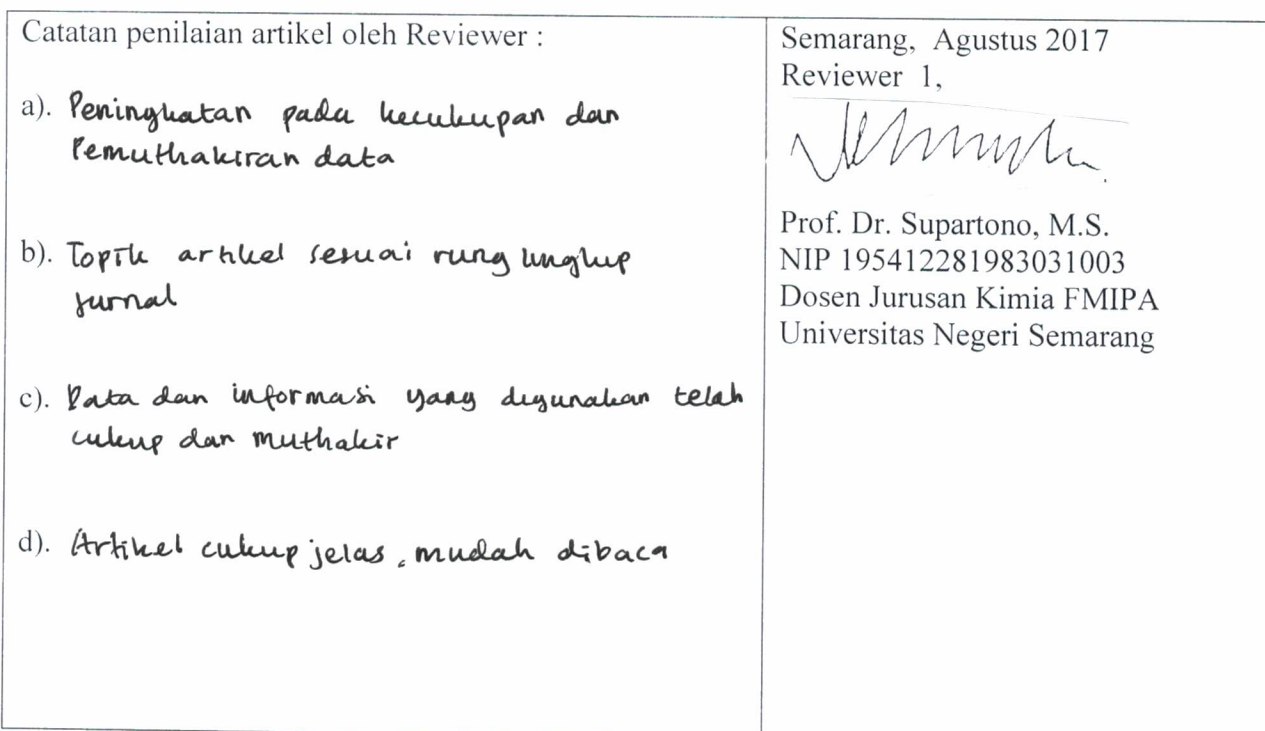 Catatan penilaian artikel oleh Reviewer :
a). Peningkatan pada kecukupan dan
Pemuthakiran data
b). Topik artikel sesuai rung lingkup
jurnal
c). Data dan informasi yang digunakan telah
cukup dan muthakir
d). Artikel cukup jelas, mudah dibaca
Semarang, Agustus 2017
Reviewer 1,
Prof. Dr. Supartono, M.S.
NIP 195412281983031003
Dosen Jurusan Kimia FMIPA
Universitas Negeri Semarang